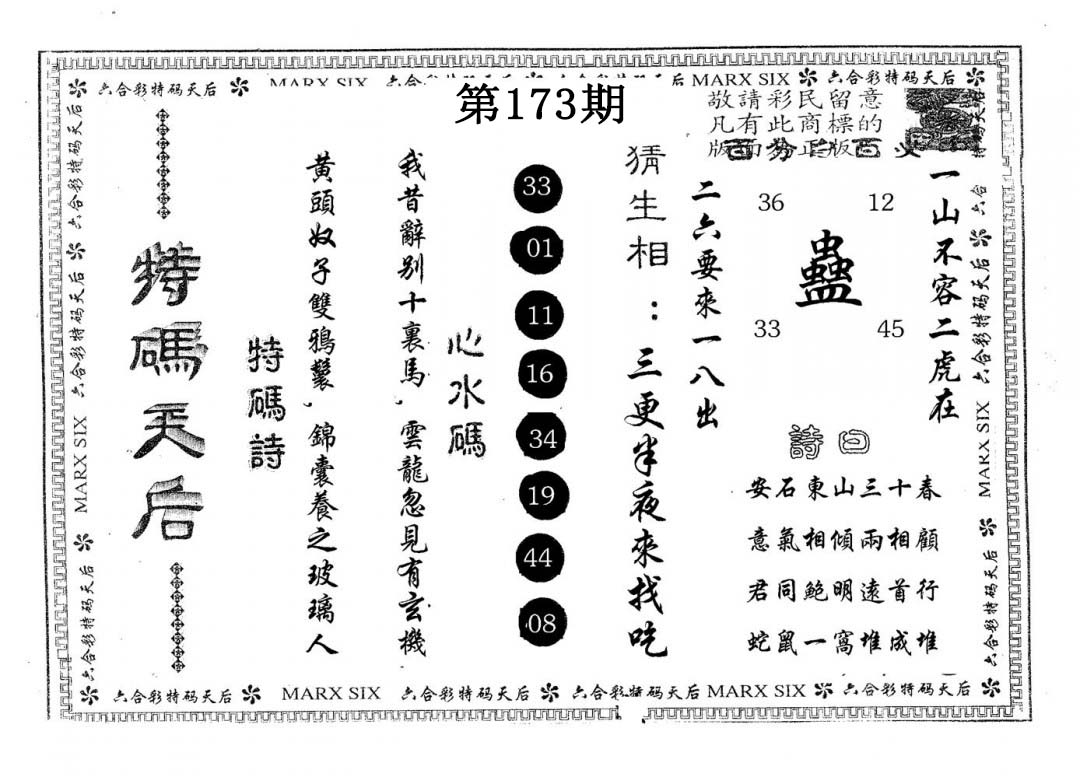 六合彩特码天后 MARX SIX 六合彩特码天后 MARX SIX 六合彩特码天后
第173期
敬請彩民留意
凡有此商標的
版面為正版
一山不容二虎在
36 12
蠱
33 45
詩曰
安石東山三十春
意氣相傾兩相顧
君同鮑明遠首行
蛇鼠一窩堆成堆
二六要來一八出
猜生相：三更半夜來找吃
33
01
11
16
34
19
44
08
心水碼
我昔辭别十裏馬，雲龍忽見有玄機
黃頭奴子雙鴉鬟，錦囊養之玻璃人
特碼詩
特碼天后
六合彩特码天后 MARX SIX 六合彩特码天后 六合彩特码天后
六合 六合彩特码天后 MARX SIX 六合彩特码天后
六合彩特码天后 MARX SIX 六合彩特码天后 六合彩特码天后 MARX SIX 六合彩特码天后